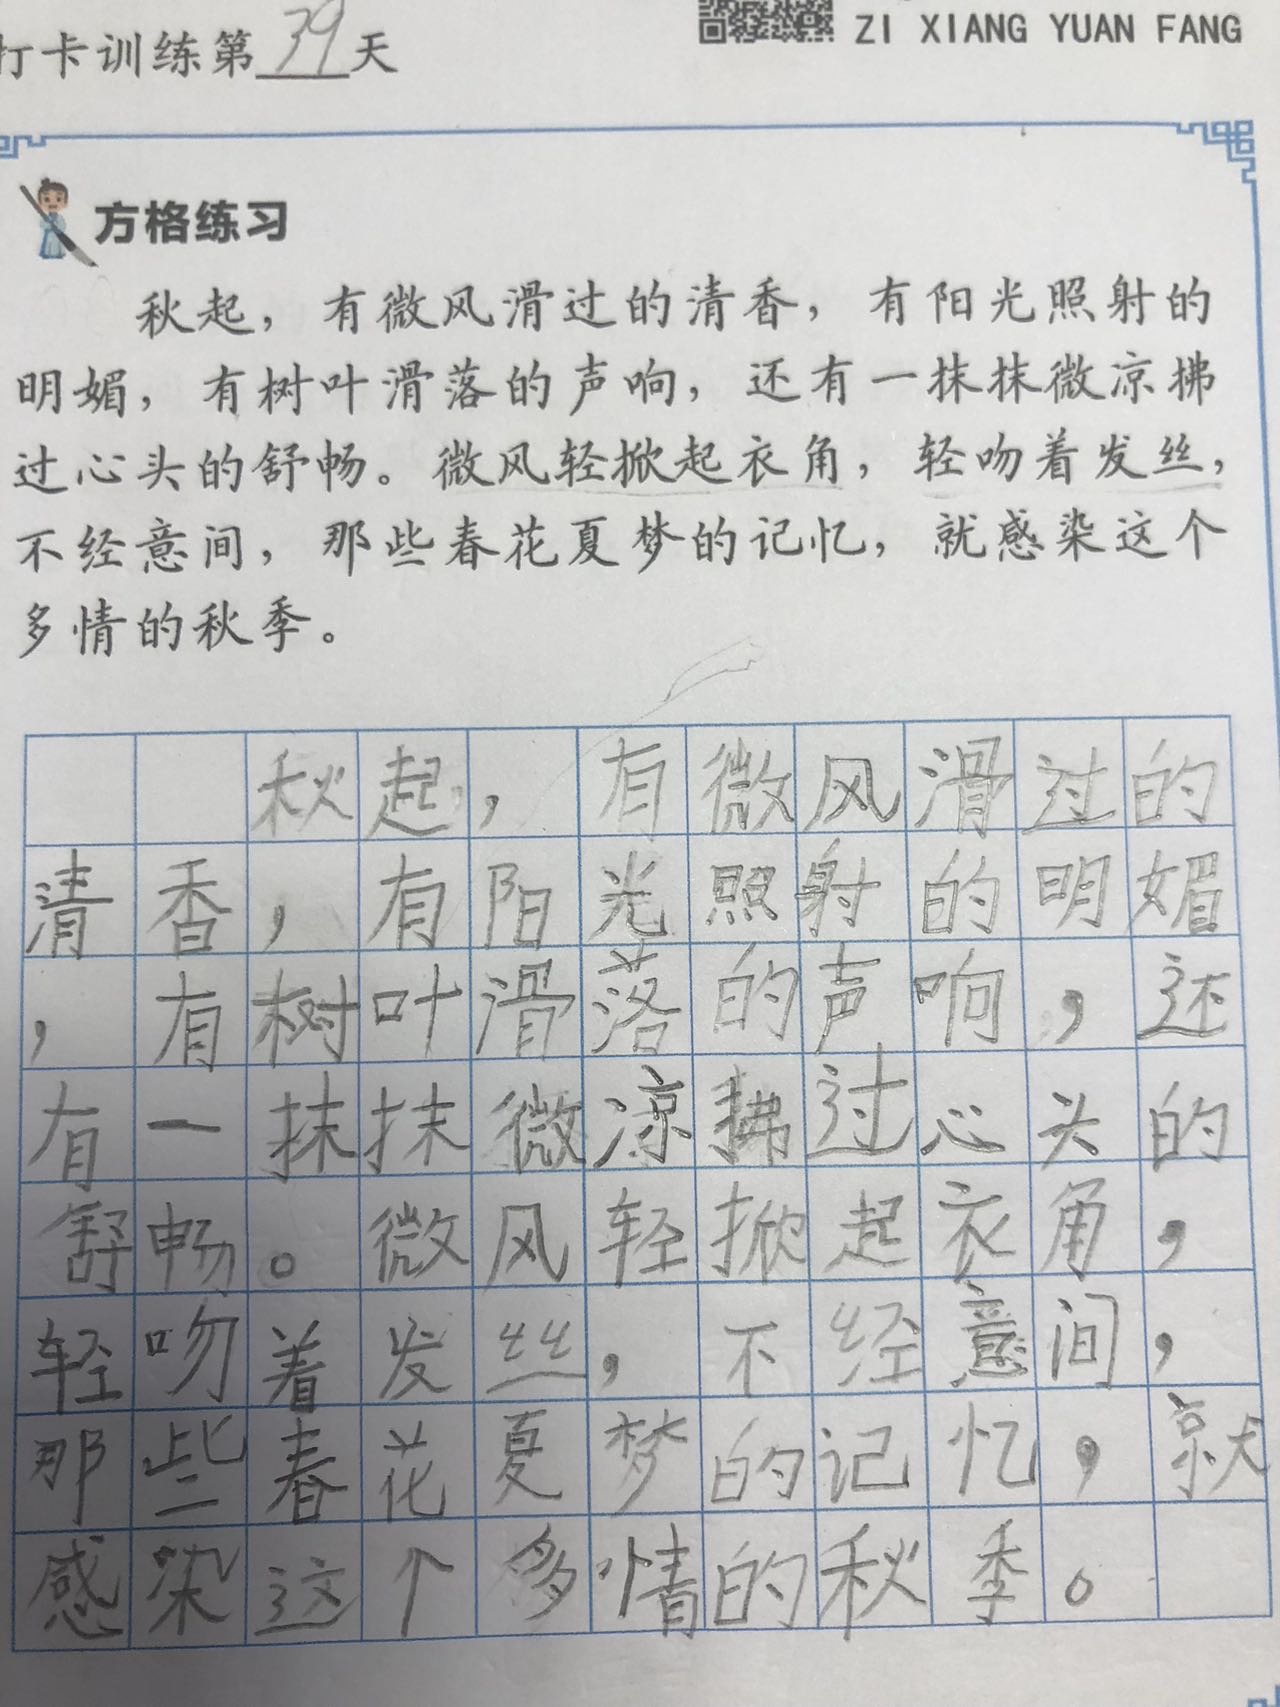 ZI XIANG YUAN FANG
打卡训练第39天
方格练习
秋起，有微风滑过的清香，有阳光照射的
明媚，有树叶滑落的声响，还有一抹抹微凉拂
过心头的舒畅。微风轻掀起衣角，轻吻着发丝，
不经意间，那些春花夏梦的记忆，就感染这个
多情的秋季。
秋起，有微风滑过的
清香，有阳光照射的明媚
，有树叶滑落的声响，还
有一抹抹微凉拂过心头的
舒畅。微风轻掀起衣角，
轻吻着发丝，不经意间，
那些春花夏梦的记忆，就
感染这个多情的秋季。